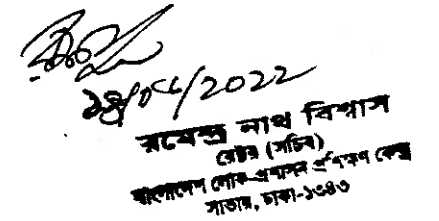 ১৪/০৮/2022
রমেন্দ্র নাথ বিশ্বাস
রেক্টর (সচিব)
বাংলাদেশ লোক-প্রশাসন প্রশিক্ষণ কেন্দ্র
সাভার, ঢাকা-১৩৪৩